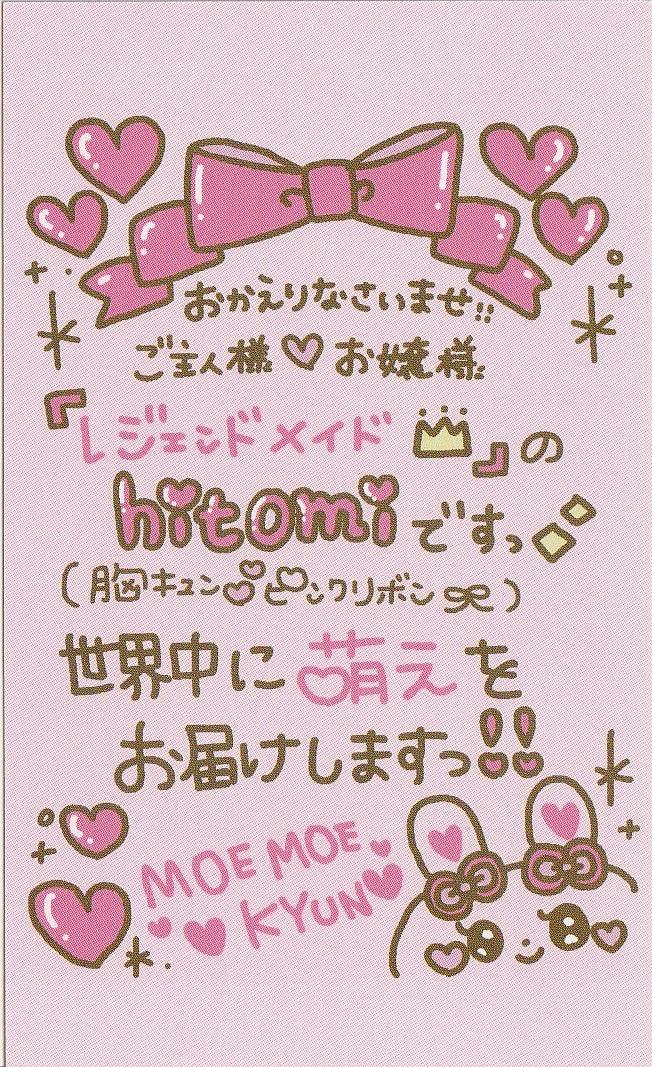 おかえりなさいませ!!
ご主人様♡お嬢様
『レジェンドメイド』の
hitomiですっ
(胸キュン♡ピンクリボン)
世界中に萌えを
お届けしますっ!!
MOE MOE
KYUN